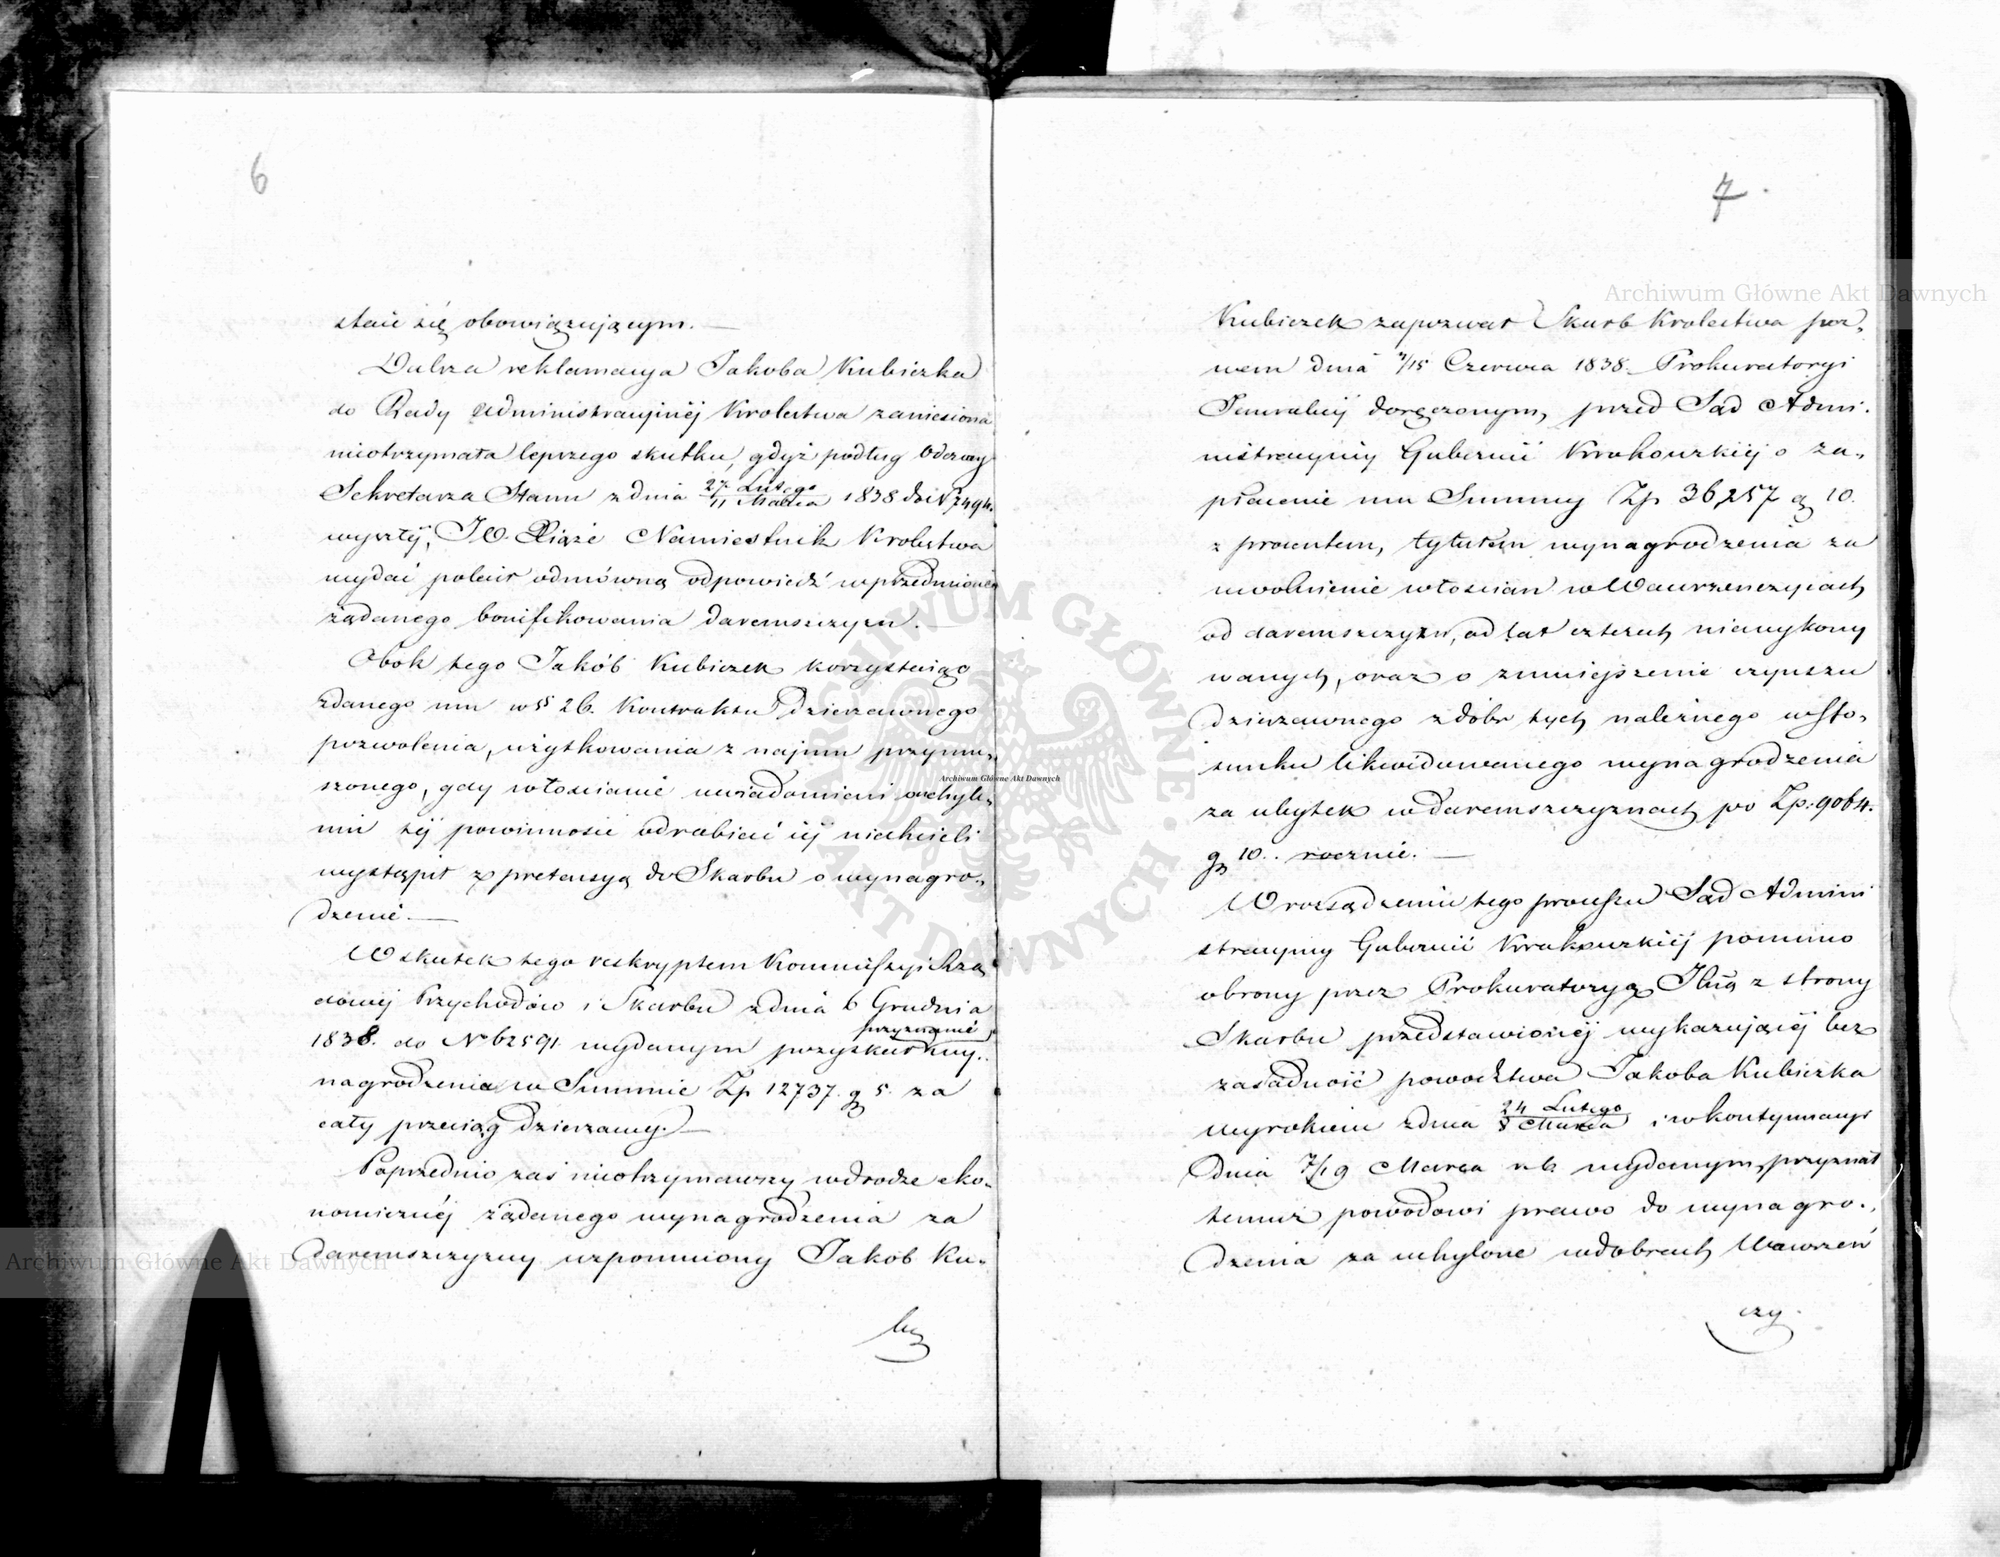 6
stać się obowiązującym. —
Dalsza reklamacya Jakoba Kubiczka
do Rady Administracyjnéj Krolestwa zaniesiona
nieotrzymała lepszego skutku, gdyż podług Odezwy
Sekretarza Stanu z dnia 27 Lutego / 11 Marca 1838 do N 7494.
wyszłéj, JO. Xiąże Namiestnik Krolestwa
wydać polecił odmówną odpowiedź w przedmiocie
żądanego bonifikowania daremszczyzn. —
Obok tego Jakób Kubiczek korzystaiąc
z danego mu w § 26. Kontraktu dzierzawnego
pozwolenia, użytkowania z najmu przymu-
szonego, gdy włoscianie uwiadomieni o uchyle-
niu téj powinnosci odrabiać iéj niechcieli
wystąpił z pretensyą do Skarbu o wynagro-
dzenie. —
W skutek tego reskryptem Kommissyi Rzą
dowéj Przychodów i Skarbu z dnia 6 Grudnia
1838. do N 62591 wydanym pozyskał przyznanie wy-
nagrodzenia w Summie Zp 12737. g 5. za
cały przeciąg dzierzawy. —
Poprzednio zaś nieotrzymawszy w drodze eko-
nomicznéj żądanego wynagrodzenia za
daremszczyzny wspomniony Jakob Ku-
bi
7.
Kubiczek zapozwał Skarb Krolestwa poz-
wem dnia 3/15 Czerwca 1838. Prokuratoryi
Jeneralnéj doręczonym, przed Sąd Admi-
nistracyjny Gubernii Krakowskiéj o za-
płacenie mu Summy Zp 36,257 g 10.
z procentem, tytułem wynagrodzenia za
uwolnienie włoscian w Wawrzenczycach
od daremszczyzn, od lat czterech niewykony
wanych, oraz o zmniejszenie czynszu
dzierzawnego z dobr tych należnego w sto-
sunku likwidowanego wynagrodzenia
za ubytek w daremszczyznach po Zp: 9064.
g 10.. rocznie. —
W rozsądzeniu tego processu Sąd Admini
stracyjny Gubernii Krakowskiéj pomimo
obrony przez Prokuratoryą Jlną z strony
Skarbu przedstawionéj wykazującéj bez
zasadność powodztwa Jakoba Kubiczka
wyrokiem z dnia 24 Lutego / 8 Marca i w kontynuacyi
dnia 7/19 Marca r. b. wydanym, przyznał
temuż powodowi prawo do wynagro-
dzenia za uchylone w dobrach Wawrzeń
czy-
Archiwum Główne Akt Dawnych
Archiwum Główne Akt Dawnych
Archiwum Główne Akt Dawnych
ARCHIWUM GŁÓWNE · AKT DAWNYCH ·